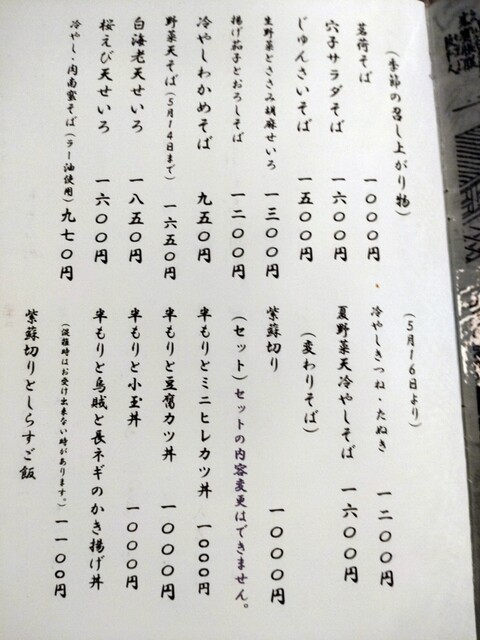 (季節の召し上がり物)
茗荷そば 一〇〇〇円
穴子サラダそば 一六〇〇円
じゅんさいそば 一五〇〇円
生野菜とささみ胡麻せいろ 一三〇〇円
揚げ茄子とおろしそば 一二〇〇円
冷やしわかめそば 九五〇円
野菜天そば(5月14日まで) 一六五〇円
白海老天せいろ 一八五〇円
桜えび天せいろ 一六〇〇円
冷やし・肉南蛮そば(ラー油使用)九七〇円
(5月16日より)
冷やしきつね・たぬき 一二〇〇円
夏野菜天冷やしそば 一六〇〇円
(変わりそば)
紫蘇切り 一〇〇〇円
(セット)セットの内容変更はできません。
半もりとミニヒレカツ丼 一〇〇〇円
半もりと豆腐カツ丼 一〇〇〇円
半もりと小玉丼 一〇〇〇円
半もりと烏賊と長ネギのかき揚げ丼
(混雑時はお受け出来ない時があります。)一一〇〇円
紫蘇切りとしらすご飯